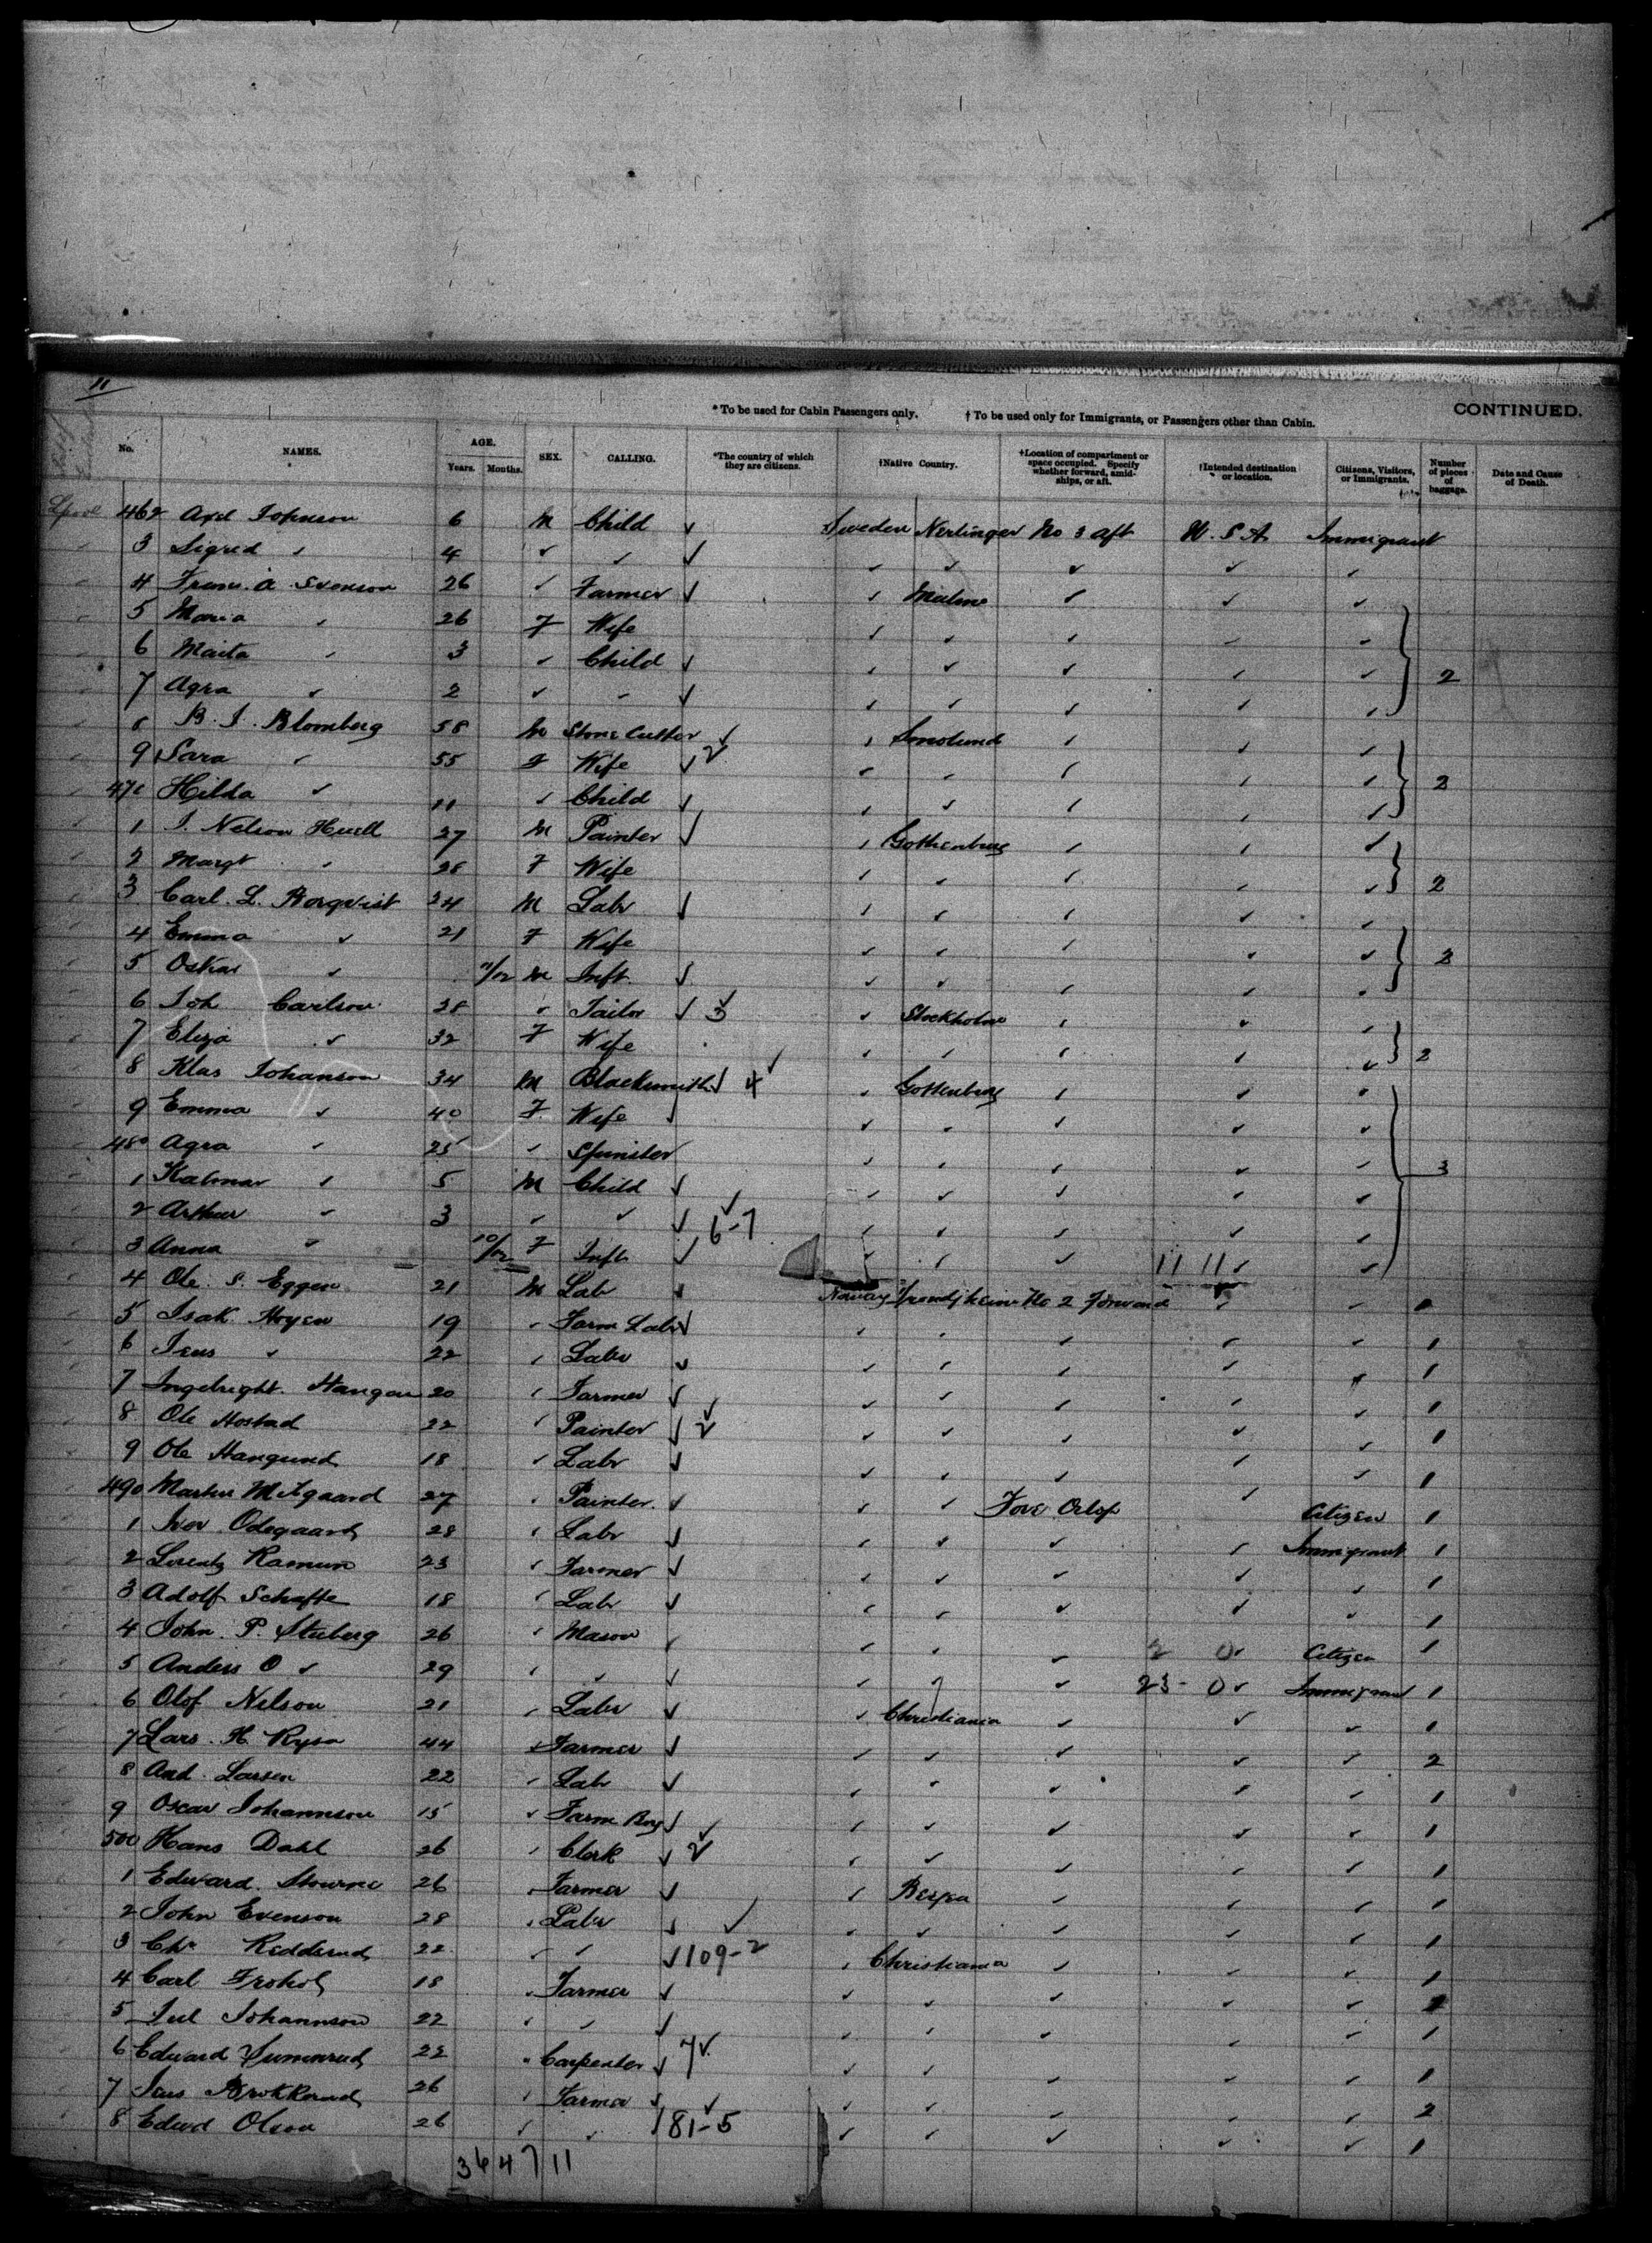 11
* To be used for Cabin Passengers only. † To be used only for Immigrants, or Passengers other than Cabin. CONTINUED.
No. NAMES. AGE. Years. Months. SEX. CALLING. *The country of which they are citizens. †Native Country. †Location of compartment or space occupied. Specify whether forward, amidships, or aft. †Intended destination or location. Citizens, Visitors, or Immigrants. Number of pieces of baggage. Date and Cause of Death.
Lpool 462 Axd Johnson 6 M Child ✓ Sweden No 3 aft U.S.A. Immigrant
3 Sigrid ✓ 4 ✓ ✓ ✓ ✓ ✓ ✓ ✓ ✓
4 Frans. A. Svenson 26 ✓ Farmer ✓ ✓ Malmo ✓ ✓ ✓
5 Maria ✓ 26 F Wife ✓ ✓ ✓ ✓ ✓
6 Maita ✓ 3 ✓ Child ✓ ✓ ✓ ✓ ✓ ✓ 2
7 Agra ✓ 2 ✓ ✓ ✓ ✓ ✓ ✓ ✓ ✓
8 B. J. Blomberg 58 M Stone Cutter ✓ ✓ Smolund ✓ ✓ ✓
9 Sara ✓ 55 F Wife ✓ 2 ✓ ✓ ✓ ✓ ✓ 2
470 Hilda ✓ 11 ✓ Child ✓ ✓ ✓ ✓ ✓ ✓
1 J. Nelson Huell 27 M Painter ✓ ✓ Gothenburg ✓ ✓ ✓
2 Margt ✓ 28 F Wife ✓ ✓ ✓ ✓ ✓ 2
3 Carl. L. Borqvist 24 M Labr ✓ ✓ ✓ ✓ ✓ ✓
4 Emma ✓ 21 F Wife ✓ ✓ ✓ ✓ ✓ 2
5 Oskar ✓ 11/12 M Inft. ✓ ✓ ✓ ✓ ✓ ✓
6 Joh Carlson 28 ✓ Tailor ✓ 3 ✓ Stockholm ✓ ✓ ✓
7 Eliza ✓ 32 F Wife ✓ ✓ ✓ ✓ ✓ 2
8 Klas Johanson 34 M Blacksmith ✓ 4 ✓ Gottenburg ✓ ✓ ✓
9 Emma ✓ 40 F. Wife ✓ ✓ ✓ ✓ ✓
480 Agra ✓ 25 ✓ Spinster ✓ ✓ ✓ ✓ ✓ 3
1 Kalmar ✓ 5 M Child ✓ ✓ ✓ ✓ ✓ ✓
2 Arthur ✓ 3 ✓ ✓ ✓ 6-7 ✓ ✓ ✓ ✓ ✓
3 Anna ✓ 10/12 F Inft ✓ ✓ ✓ ✓ 11 11 ✓ ✓
4 Ole. S. Eggen 21 M Lab ✓ Norway Trondjheim No 2 Forward ✓ ✓ 1
5 Isak Hoyen 19 ✓ Farm Labr ✓ ✓ ✓ ✓ ✓ ✓ 1
6 Jens ✓ 22 ✓ Labr ✓ ✓ ✓ ✓ ✓ ✓ 1
7 Ingebright. Haugan 20 ✓ Farmer ✓ ✓ ✓ ✓ ✓ ✓ 1
8 Ole Hostad 22 ✓ Painter ✓ 2 ✓ ✓ ✓ ✓ ✓ 1
9 Ole Hangund 18 ✓ Labr ✓ ✓ ✓ ✓ ✓ ✓ 1
490 Martin Midgaard 27 ✓ Painter ✓ ✓ ✓ Fore Orlop ✓ Citizen 1
1 Iver Odegaard 28 ✓ Labr ✓ ✓ ✓ ✓ ✓ Immigrant 1
2 Lorentz Ramun 23 ✓ Farmer ✓ ✓ ✓ ✓ ✓ ✓ 1
3 Adolf Schafte 18 ✓ Labr ✓ ✓ ✓ ✓ ✓ ✓ 1
4 John. P. Stuberg 26 ✓ Mason ✓ ✓ ✓ ✓ Citizen 1
5 Anders O ✓ 29 ✓ ✓ ✓ ✓ ✓ ✓ 23-0 ✓ Immigrant 1
6 Olof Nelson 21 ✓ Labr ✓ ✓ Christiania ✓ ✓ ✓ 1
7 Lars. H. Rysa 44 ✓ Farmer ✓ ✓ ✓ ✓ ✓ ✓ 2
8 And. Larsen 22 ✓ Labr ✓ ✓ ✓ ✓ ✓ ✓ 1
9 Oscar Johannson 15 ✓ Farm Boy ✓ ✓ ✓ ✓ ✓ ✓ 1
500 Hans Dahl 26 ✓ Clerk ✓ 2 ✓ ✓ ✓ ✓ ✓ 1
1 Edward 26 ✓ Farmer ✓ ✓ Bergen ✓ ✓ ✓ 1
2 John Evenson 28 ✓ Labr ✓ ✓ ✓ ✓ ✓ ✓ 1
3 Chr Redderud 22 ✓ ✓ ✓ 109-2 ✓ Christiania ✓ ✓ ✓ 1
4 Carl Frohol 18 ✓ Farmer ✓ ✓ ✓ ✓ ✓ ✓ 1
5 Jul Johannson 22 ✓ ✓ ✓ ✓ ✓ ✓ ✓ ✓ 1
6 Edward 22 ✓ Carpenter ✓ 7 ✓ ✓ ✓ ✓ ✓ 1
7 Jens 26 ✓ Farmer ✓ ✓ ✓ ✓ ✓ ✓ 2
8 Edwd Olson 26 ✓ ✓ ✓ 81-5 ✓ ✓ ✓ ✓ ✓ 1
36 4 7 11